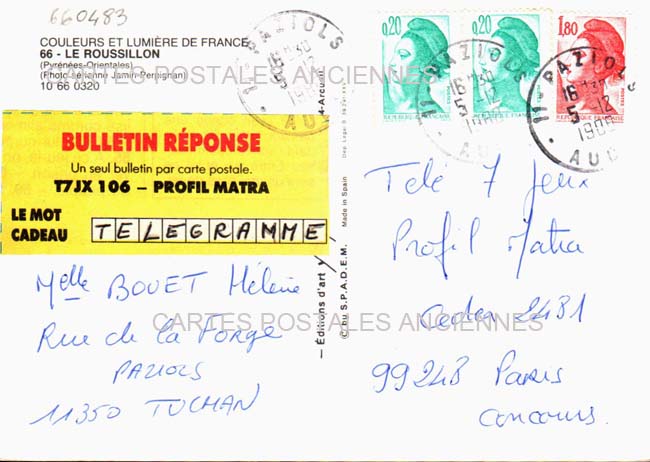 660483
COULEURS ET LUMIÈRE DE FRANCE
66 - LE ROUSSILLON
(Pyrénées-Orientales)
(Photo aérienne Jamin-Perpignan)
10 66 0320
BULLETIN RÉPONSE
Un seul bulletin par carte postale.
T7JX 106 – PROFIL MATRA
LE MOT
CADEAU
TELEGRAMME
Melle BOUET Hélène
Rue de la Forge
PAZIOLS
11350 TUCHAN
— Éditions d'art
© by S.P.A.D.E.M.
Made in Spain
0,20
REPUBLIQUE FRANÇAISE
0,20
REPUBLIQUE FRANÇAISE
1,80
POSTES
11 PAZIOLS
16 H30
5 - 12
AUDE
11 PAZIOLS
16 H30
5 - 12
AUDE
Télé 7 Jeux
Profil Matra
Cedex 2481
99248 Paris
Concours.
CARTES POSTALES ANCIENNES
CARTES POSTALES ANCIENNES